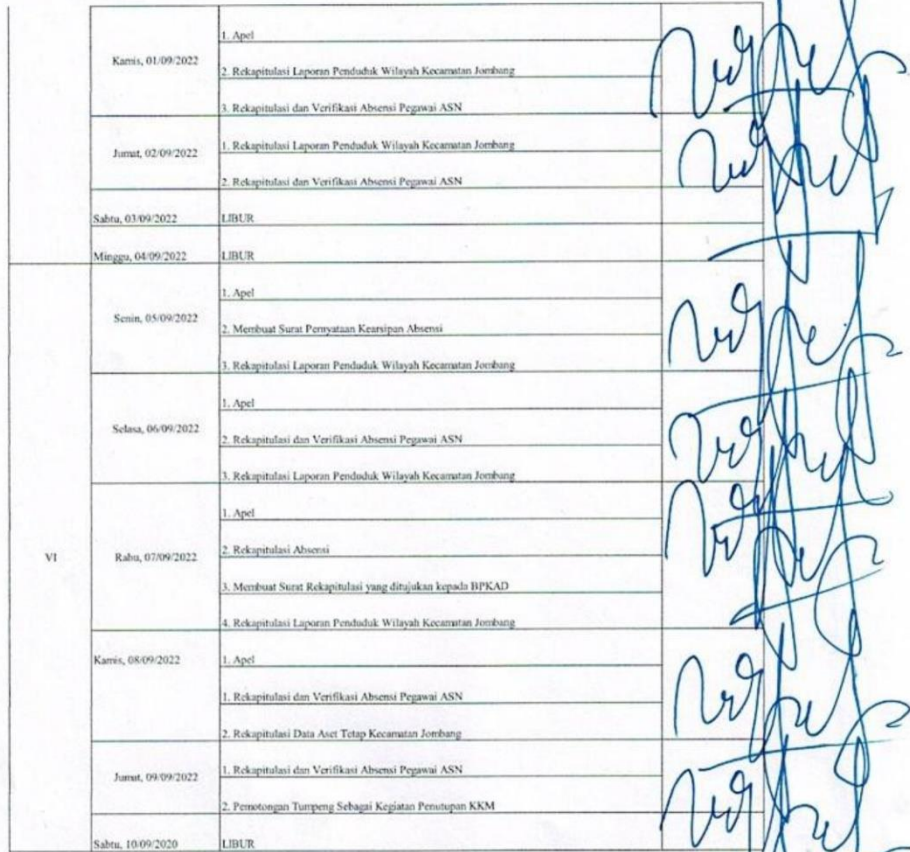 Kamis, 01/09/2022
1. Apel
2. Rekapitulasi Laporan Penduduk Wilayah Kecamatan Jombang
3. Rekapitulasi dan Verifikasi Absensi Pegawai ASN
Jumat, 02/09/2022
1. Rekapitulasi Laporan Penduduk Wilayah Kecamatan Jombang
2. Rekapitulasi dan Verifikasi Absensi Pegawai ASN
Sabtu, 03/09/2022 LIBUR
Minggu, 04/09/2022 LIBUR
VI
Senin, 05/09/2022
1. Apel
2. Membuat Surat Pernyataan Kearsipan Absensi
3. Rekapitulasi Laporan Penduduk Wilayah Kecamatan Jombang
Selasa, 06/09/2022
1. Apel
2. Rekapitulasi dan Verifikasi Absensi Pegawai ASN
3. Rekapitulasi Laporan Penduduk Wilayah Kecamatan Jombang
Rabu, 07/09/2022
1. Apel
2. Rekapitulasi Absensi
3. Membuat Surat Rekapitulasi yang ditujukan kepada BPKAD
4. Rekapitulasi Laporan Penduduk Wilayah Kecamatan Jombang
Kamis, 08/09/2022
1. Apel
1. Rekapitulasi dan Verifikasi Absensi Pegawai ASN
2. Rekapitulasi Data Aset Tetap Kecamatan Jombang
Jumat, 09/09/2022
1. Rekapitulasi dan Verifikasi Absensi Pegawai ASN
2. Pemotongan Tumpeng Sebagai Kegiatan Penutupan KKM
Sabtu, 10/09/2020 LIBUR